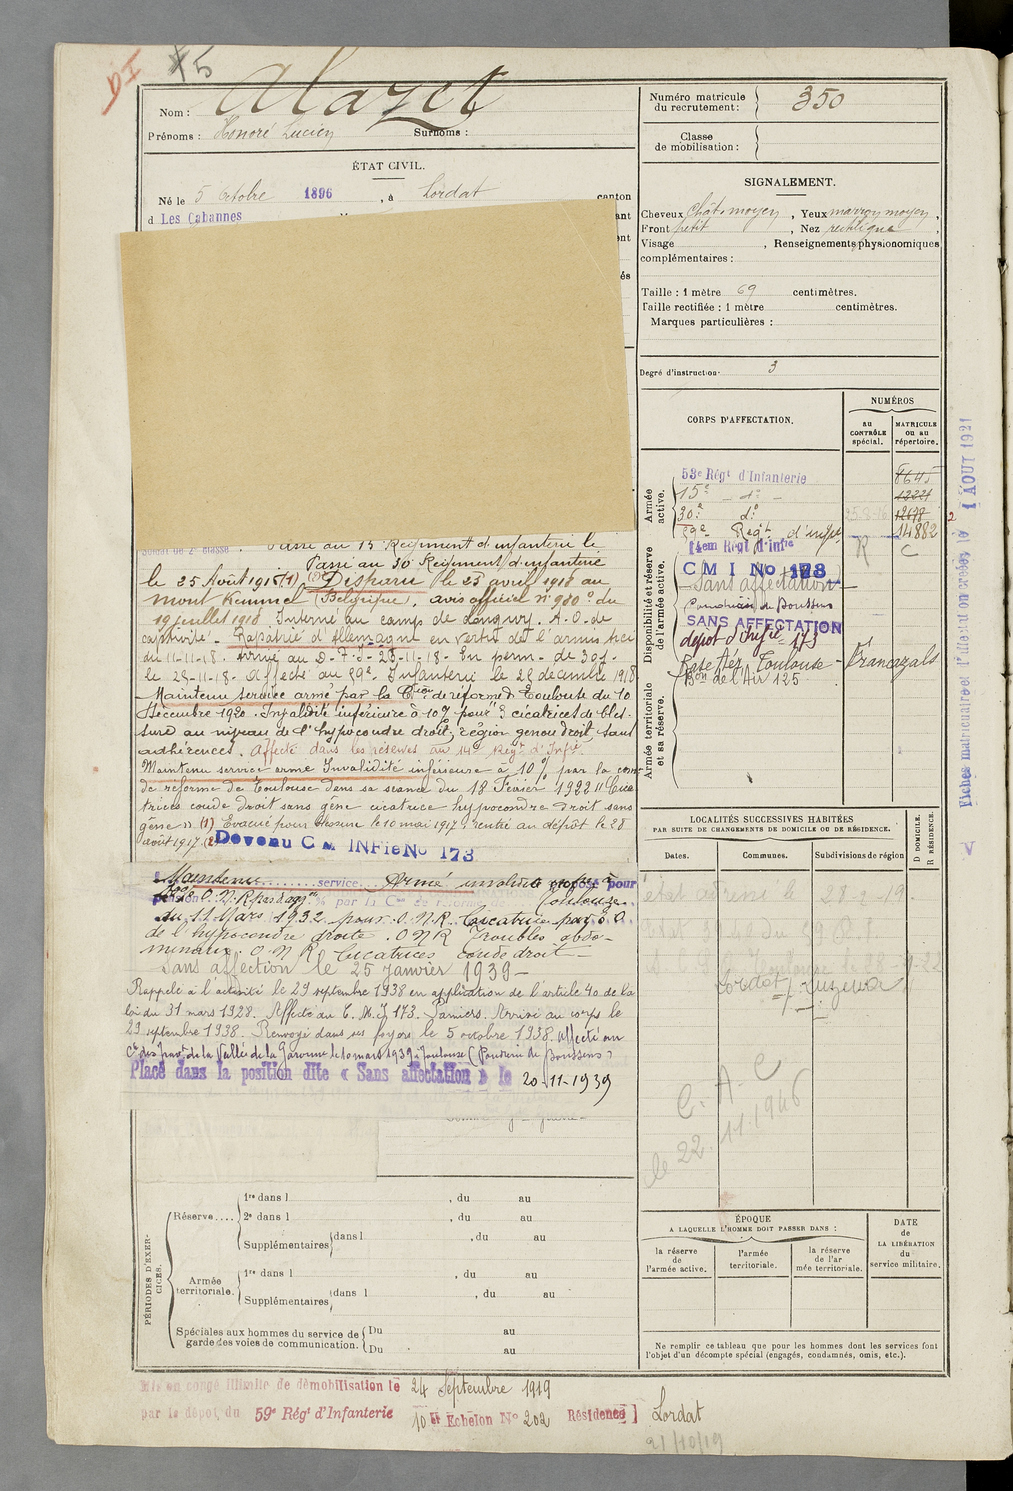 15
Nom : Alazet
Prénoms : Honoré Lucien Surnoms :
ÉTAT CIVIL.
Né le 5 octobre 1896, à Lordat canton
d Les Cabannes
Numéro matricule du recrutement : 350
Classe de mobilisation :
SIGNALEMENT.
Cheveux chât. moyen, Yeux marron moyen,
Front petit, Nez rectiligne,
Visage , Renseignements physionomiques
complémentaires :
Taille : 1 mètre 69 centimètres.
Taille rectifiée : 1 mètre centimètres.
Marques particulières :
Degré d'instruction 3
CORPS D'AFFECTATION.
NUMÉROS
au CONTRÔLE spécial.
MATRICULE ou au répertoire.
Armée active.
53e Régt d'Infanterie 8645
15e d° 12221
30e d° 12698
59e Regt d'infie 14882
Disponibilité et réserve de l'armée active.
14em Régt d'Infie R C
C M I No 173
Sans affectation
Poudrerie de Boussens
SANS AFFECTATION
dépôt d'Infie 173
Base Aér. Toulouse - Francazals
Bon de l'Air 125
Armée territoriale et sa réserve.
Fiches matriculaire et le 1 AOUT 1921
Soldat de 2e classe. Passé au 15 Régiment d'infanterie le
Passé au 30 Régiment d'infanterie
le 25 Août 1916 (1) (2) Disparu le 25 avril 1918 au
mont Kemmel (Belgique). avis officiel n° 980 du
19 juillet 1918 Interné au camps de
captivité. Rapatrié d'Allemagne en vertu de l'armistice
du 11-11-18. Arrivé au D.T.I. 28-11-18. En perm. de 30 j.
le 29-11-18. Affecté au 59e Infanterie le 28 décembre 1918
Maintenu service armé par la Con de réforme de Toulouse du 10
Décembre 1920. Invalidité inférieure à 10% pour 3 cicatrices de bles-
sure au niveau de l'hypocondre droit, région genou droit, sans
adhérences. Affecté dans les réserves au 14e Régt d'Infie
Maintenu service armé Invalidité inférieure à 10% par la com
de réforme de Toulouse dans sa séance du 18 Février 1922 "Cica
trices coude droit sans gêne cicatrice hypocondre droit sans
gêne" (1) Evacué pour blessure le 10 mai 1917, rentré au dépôt le 28
août 1917. (2 Devenu C M INFie No 173
Maintenu service Armé invalidité proposé pour
pension O.N.R. par la Con de réforme de Toulouse
du 11 Mars 1932 pour O.N.R. Cicatrice
de l'hypocondre droite. ONR Troubles abdo-
minaux. O N R Cicatrices coude droit
Sans affection le 25 janvier 1939
Rappelé à l'activité le 29 septembre 1938 en application de l'article 40 de la
loi du 31 mars 1928. Affecté au C.M.I 173. Pamiers. Arrivé au corps le
29 septembre 1938. Renvoyé dans ses foyers le 5 octobre 1938. Affecté au
de la Vallée de la Garonne le 10 mars 1939 à Toulouse (Poudrerie de Boussens)
Placé dans la position dite « Sans affectation » le 20-11-1939
LOCALITÉS SUCCESSIVES HABITÉES
PAR SUITE DE CHANGEMENTS DE DOMICILE OU DE RÉSIDENCE.
Dates.
Communes.
Subdivisions de région
D DOMICILE.
R RÉSIDENCE.
Lordat / Luzenac
C. A. C
le 22.11.1946
PÉRIODES D'EXERCICES.
Réserve....
1re dans l , du au
2e dans l , du au
Supplémentaires dans l , du au
Armée territoriale.
1re dans l , du au
Supplémentaires dans l , du au
Spéciales aux hommes du service de garde des voies de communication.
Du au
Du au
ÉPOQUE
A LAQUELLE L'HOMME DOIT PASSER DANS :
la réserve de l'armée active.
l'armée territoriale.
la réserve de l'armée territoriale.
DATE de LA LIBÉRATION du service militaire.
Ne remplir ce tableau que pour les hommes dont les services font
l'objet d'un décompte spécial (engagés, condamnés, omis, etc.).
Mis en congé illimité de démobilisation le 24 Septembre 1919
par le dépôt du 59e Régt d'Infanterie 10 er Echelon No 202 Résidence] Lordat
21/10/19